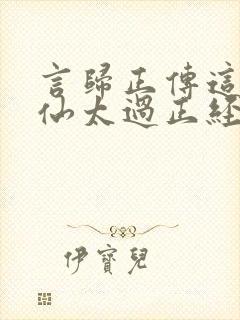 言歸正傳這
仙太過正經
伊寶兒